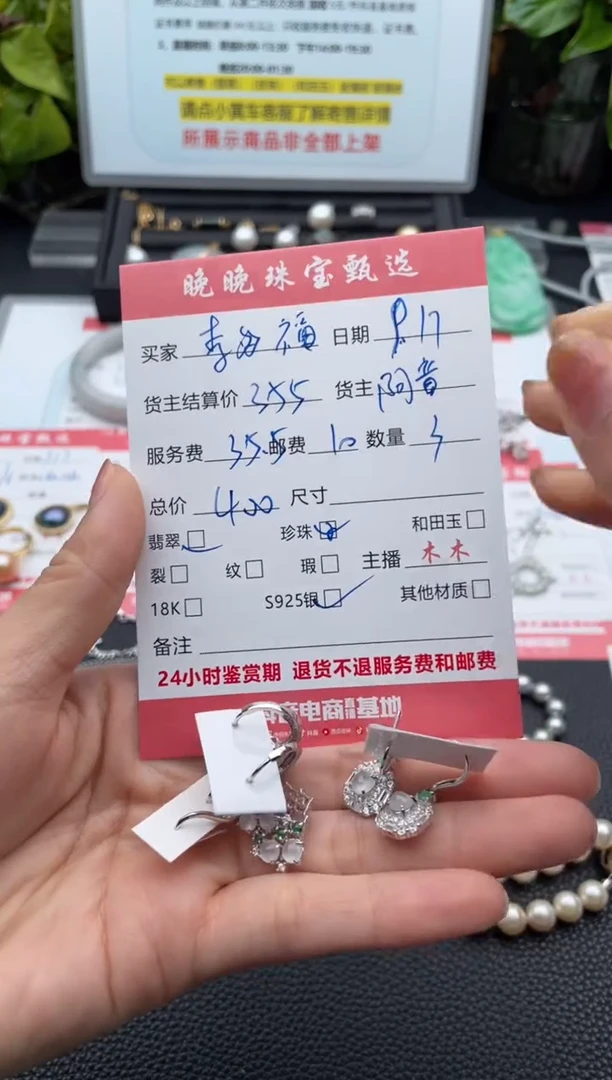 请点小黄车客服了解寄售详情
所展示商品非全部上架
晚晚珠宝甄选
买家 李海福 日期 8.17
货主结算价 355 货主 阿音
服务费 35.5 邮费 10 数量 3
总价 400 尺寸
翡翠 珍珠 和田玉
裂 纹 瑕 主播 木木
18K S925银 其他材质
备注
24小时鉴赏期 退货不退服务费和邮费
抖音电商直播基地